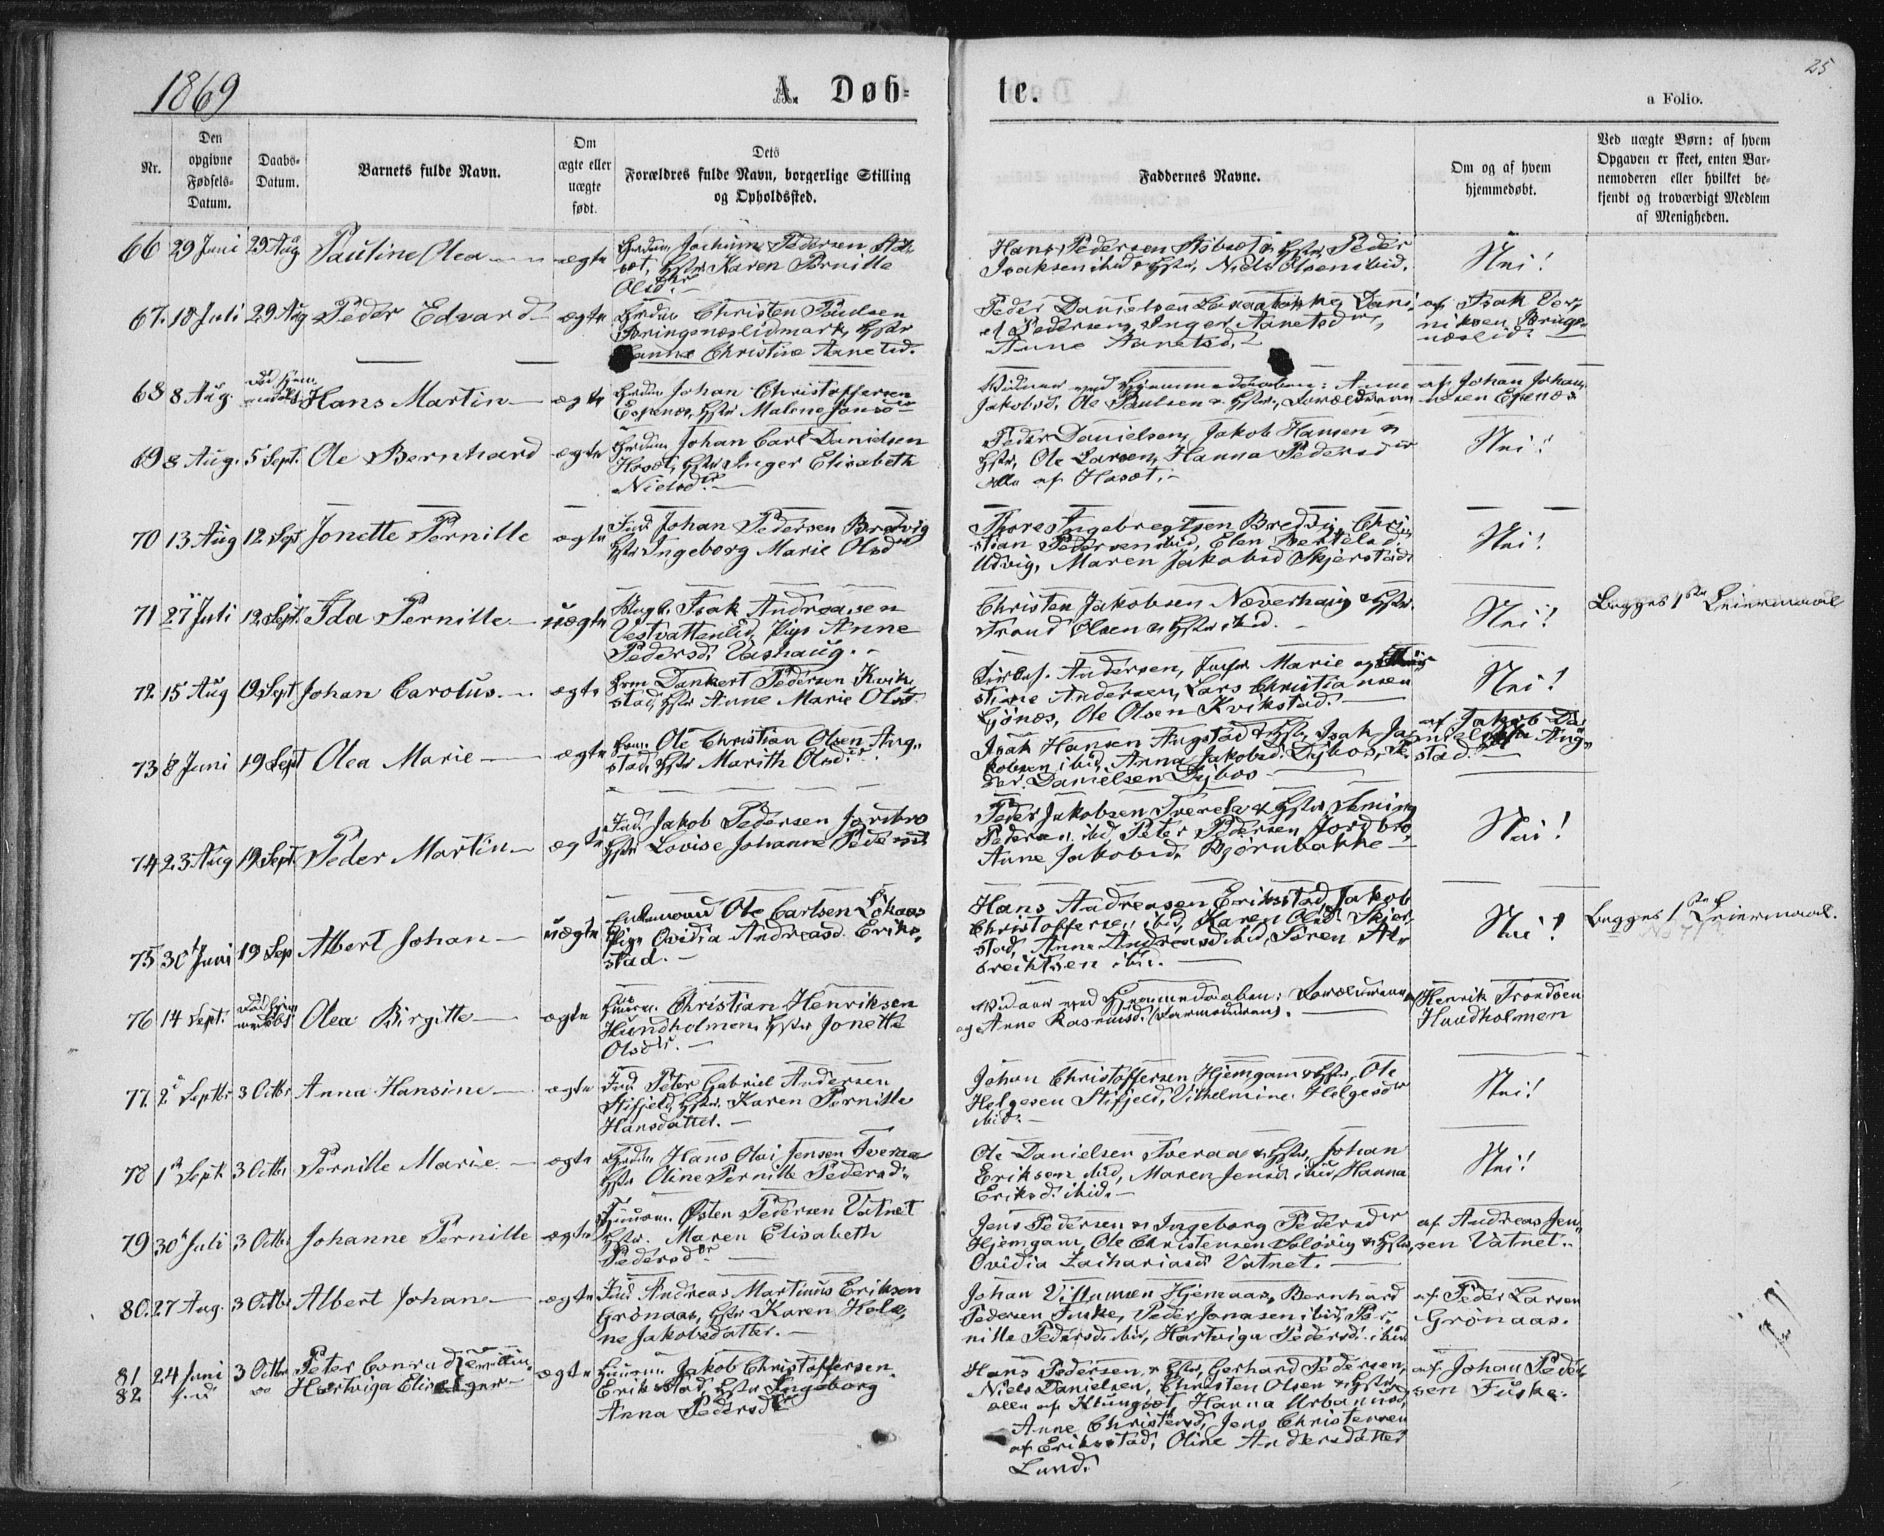 1869
A. Døb-
te.
25
a Folio.
Nr.
Den opgivne Fødsels-Datum.
Daabs-Datum.
Barnets fulde Navn.
Om ægte eller uægte født.
Dets Forældres fulde Navn, borgerlige Stilling og Opholdssted.
Faddernes Navne.
Om og af hvem hjemmedøbt.
Ved uægte Børn: af hvem Opgaven er skeet, enten Barnemoderen eller hvilket bekjendt og troværdigt Medlem af Menigheden.
66 29 Juni 29 Aug Pautine Olea ægte
Jochum Pedersen
Hstr Karen Pernille
Olsdtr
Hans Pedersen & Hstr, Peder
Isaksen ibid & Hstr, Niels Olsen ibid.
Nei!
67. 18 Juli 29 Aug Peder Edvard ægte
Christen Paulsen
Hstr
Hanna Christine Aanetsd.
Peder Danielsen Dani-
el Pedersen, Inger Aanetsdtr,
Anne Aanetsd.
af Isak
68 8 Aug. Hans Martin ægte
Johan Christoffersen
Espenæs, Hstr Malene Jonsd
Vidner ved Hjemmedaaben: Anne
Jakobsd, Ole Paulsen & Hstr, Forældrene
af Johan Johan-
nesen Esnæs
69 8 Aug. 5 Sept. Ole Bernhard ægte
Johan Carl Danielsen
Hosæt, Hstr Inger Elisabeth
Nielsd.
Peder Danielsen, Jakob Hansen &
Hstr, Ole Larsen, Hanna Pedersdtr
alle af Hosæt.
Nei!
70 13 Aug 12 Sept Jonette Pernille ægte
Ind. Johan Pedersen Bredvig
Hstr Ingeborg Marie Olsd
Thore Ingebregtsen Bredvig, Chri-
stian Pedersen ibid, Elen
Udvig, Maren Jakobsd Skjerstad
Nei!
71 27 Juli 12 Sept. Ida Pernille uægte
Isak Andreasen
Vestvattenlid, Pige Anne
Pedersd. Vashaug.
Christen Jakobsen Næverhaug & Hstr.
Trond Olsen & Hstr ibid.
Nei!
Begges 1ste Leiermaal
72 15 Aug 19 Sept Johan Carolus ægte
Dankert Pedersen Kvik-
stad, Hstr Anne Marie Olsd.
Andersen, Marie og
stine Andersen, Lars Christiansen
Ljønes, Ole Olsen Kvikstad.
Nei!
73 8 Juni 19 Sept Olea Marie ægte
Ole Christian Olsen Aug-
stad, Hstr Marith Olsd.
Isak Hansen Augstad & Hstr, Isak Ja-
kobsen ibid, Anna Jakobsd. Dybos, Pe-
der Danielsen Dybos
af Jakob Da-
Aug-
stad.
74 23 Aug 19 Sept. Peder Martin ægte
Ind. Jakob Pedersen Jordbro
Hstr Lovise Johanne Pedersd
Peder Jakobsen & Hstr
Pedersen ibid, Peter Pedersen Jordbro,
Anne Jakobsd. Bjørnbakke
Nei!
75 30 Juni 19 Sep Albert Johan uægte
Ole Carlsen
Pige Ovidia Andreasd. Eriks-
stad.
Hans Andreasen Erikstad, Jakob
Christoffersen ibid, Karen Olsd. Skjer-
stad, Anne Andreasd ibid, Søren Al-
breiktsen ibid.
Nei!
Begges 1ste Leiermaal.
76 14 Sept. Olea Birgitte ægte
Christian Henriksen
Hundholmen, Hstr Jonette
Olsd.
Vidner ved Hjemmedaaben: Forældrene
og Anne Rasmusd.
Henrik Trondsen
Hundholmen
77. 2 Septbr 3 Octbr Anna Hansine ægte
Ind. Peter Gabriel Andersen
Stifjeld, Hstr. Karen Pernille
Hansdatter.
Johan Christoffersen Hjemgam & Hstr, Ole
Helgesen Stifjeld, Vilhelmine Helgesdtr
ibid.
Nei!
78 1 Sept 3 Octbr Pernille Marie ægte
Hans Olai Jensen Sveraa
Hstr Oline Pernille Pedersd.
Ole Danielsen Sveraa & Hstr, Johan
Eriksen ibid, Maren Jensd. ibid, Hanna
Eriksd. ibid.
Nei!
79 30 Juli 3 Octbr Johanne Pernille ægte
Østen Pedersen Vatnet
Hstr. Maren Elisabeth
Pedersdtr
Jens Pedersen & Ingeborg Pedersdtr
Hjemgam, Ole Christensen Soløvig & Hstr,
Ovidia Zachariasd Vatnet.
af Andreas Jen-
sen Vatnet.
80. 27 Aug. 3 Octbr Albert Johan ægte
Ind Andreas Martinus Eriksen
Grønaas, Hstr Karen Hele-
ne Jakobsdatter.
Johan Villumsen Hjemaas, Bernhard
Pedersen Fuske, Peder Jonasen ibid, Per-
nille Pedersd. ibid, Hartviga Pedersd. ibid
af Peder Larsen
Grønaas.
81 24 Juni 3 Octbr Peter Conrad ægte
82 Hartviga
Jakob Christoffersen
Erikstad, Hstr Ingeborg
Anna Pedersdtr
Hans Pedersen & Hstr, Gerhard Pedersen,
Niels Danielsen, Christen Olsen & Hstr
alle af Klungset, Hanna Urbanusd,
Anne Christensd, Jens Christensen
af Erikstad, Oline Andersdatter
Lund.
af Johan Peder-
sen Fuske.